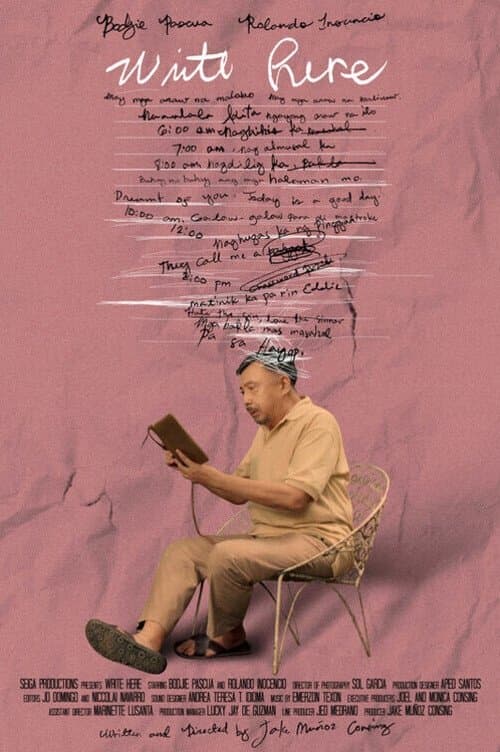 Bodjie Pascua Rolando Inocencio
Write Here
May mga araw na malabo May mga araw na
Naaalala kita ngayong araw na ito
6:00 am nagbihis ka
7:00 am, nag almusal ka
8:00 am nagdilig ka,
Buhay na buhay ang mga halaman mo.
Dreamt of you. Today is a good day.
10:00 am. Galaw-galaw para di mastroke
12:00
naghugas ka ng pinggan
They call me a
2:00 pm
matinik ka pa rin Eddie
Hate the sin, love the sinner
Mga bakla mas masahol
pa sa Hayop.
SEIGA PRODUCTIONS PRESENTS WRITE HERE STARRING BODJIE PASCUA AND ROLANDO INOCENCIO DIRECTOR OF PHOTOGRAPHY SOL GARCIA PRODUCTION DESIGNER APED SANTOS
EDITORS JO DOMINGO AND NICCOLAI NAVARRO SOUND DESIGNER ANDREA TERESA T. IDIOMA MUSIC BY EMERZON TEXON EXECUTIVE PRODUCERS JOEL AND MONICA CONSING
ASSISTANT DIRECTOR MARINETTE LUSANTA PRODUCTION MANAGER LUCKY JAY DE GUZMAN LINE PRODUCER JED MEDRANO PRODUCER JAKE MUÑOZ CONSING
Written and Directed by Jake Muñoz Consing